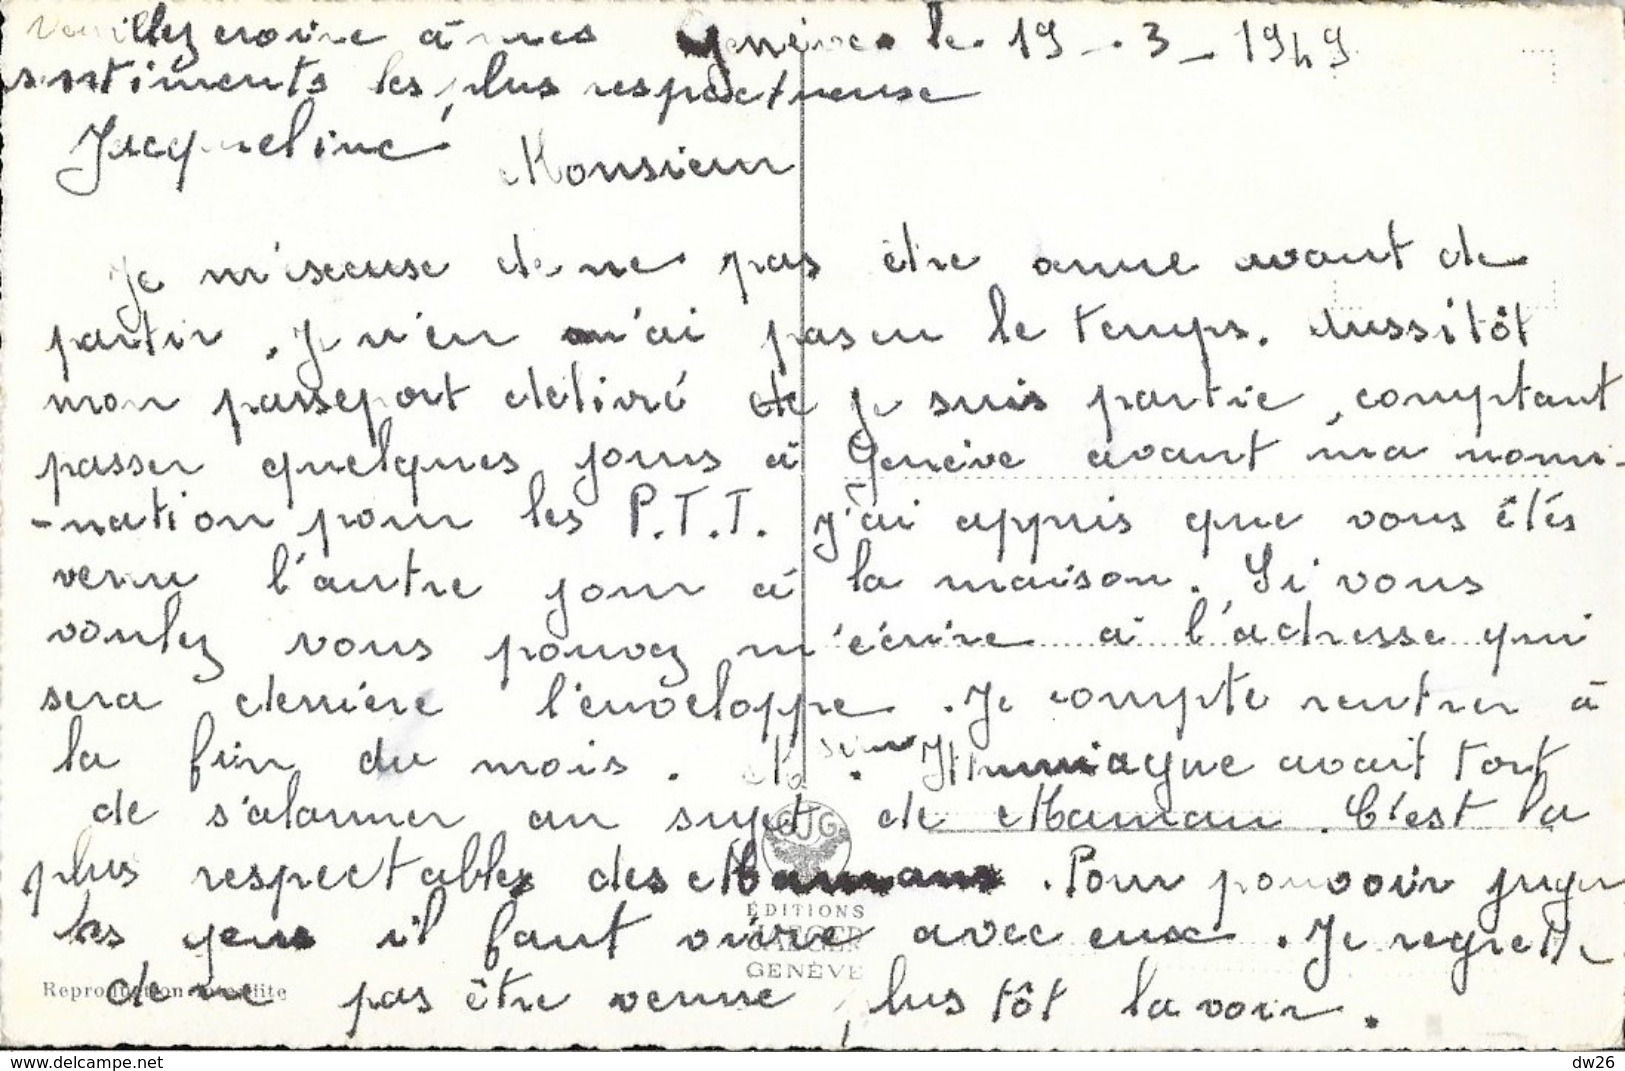 Veuillez croire à mes
sentiments les plus respectueuse
Jacqueline
Genève le 19-3-1949
Monsieur
Je m'iscuse de ne pas être avant de
partir. Je n'en n'ai pas eu le temps. Aussitôt
mon passeport délivré je suis partie, comptant
passer quelques jours à Genève avant ma nomi-
-nation pour les P.T.T. J'ai appris que vous êtés
venu l'autre jour à la maison. Si vous
voulez vous pouvez m'écrire à l'adresse qui
sera derrière l'enveloppe. Je compte rentrer à
la fin du mois. avait tort
de s'alarmer au sujet de Maman. C'est la
plus respectables des Mamans. Pour pouvoir juger
les gens il faut vivre avec eux. Je regrette
de ne pas être venue plus tôt la voir.
ÉDITIONS
JAEGER
GENÈVE
Reproduction interdite
www.delcampe.net
dw26